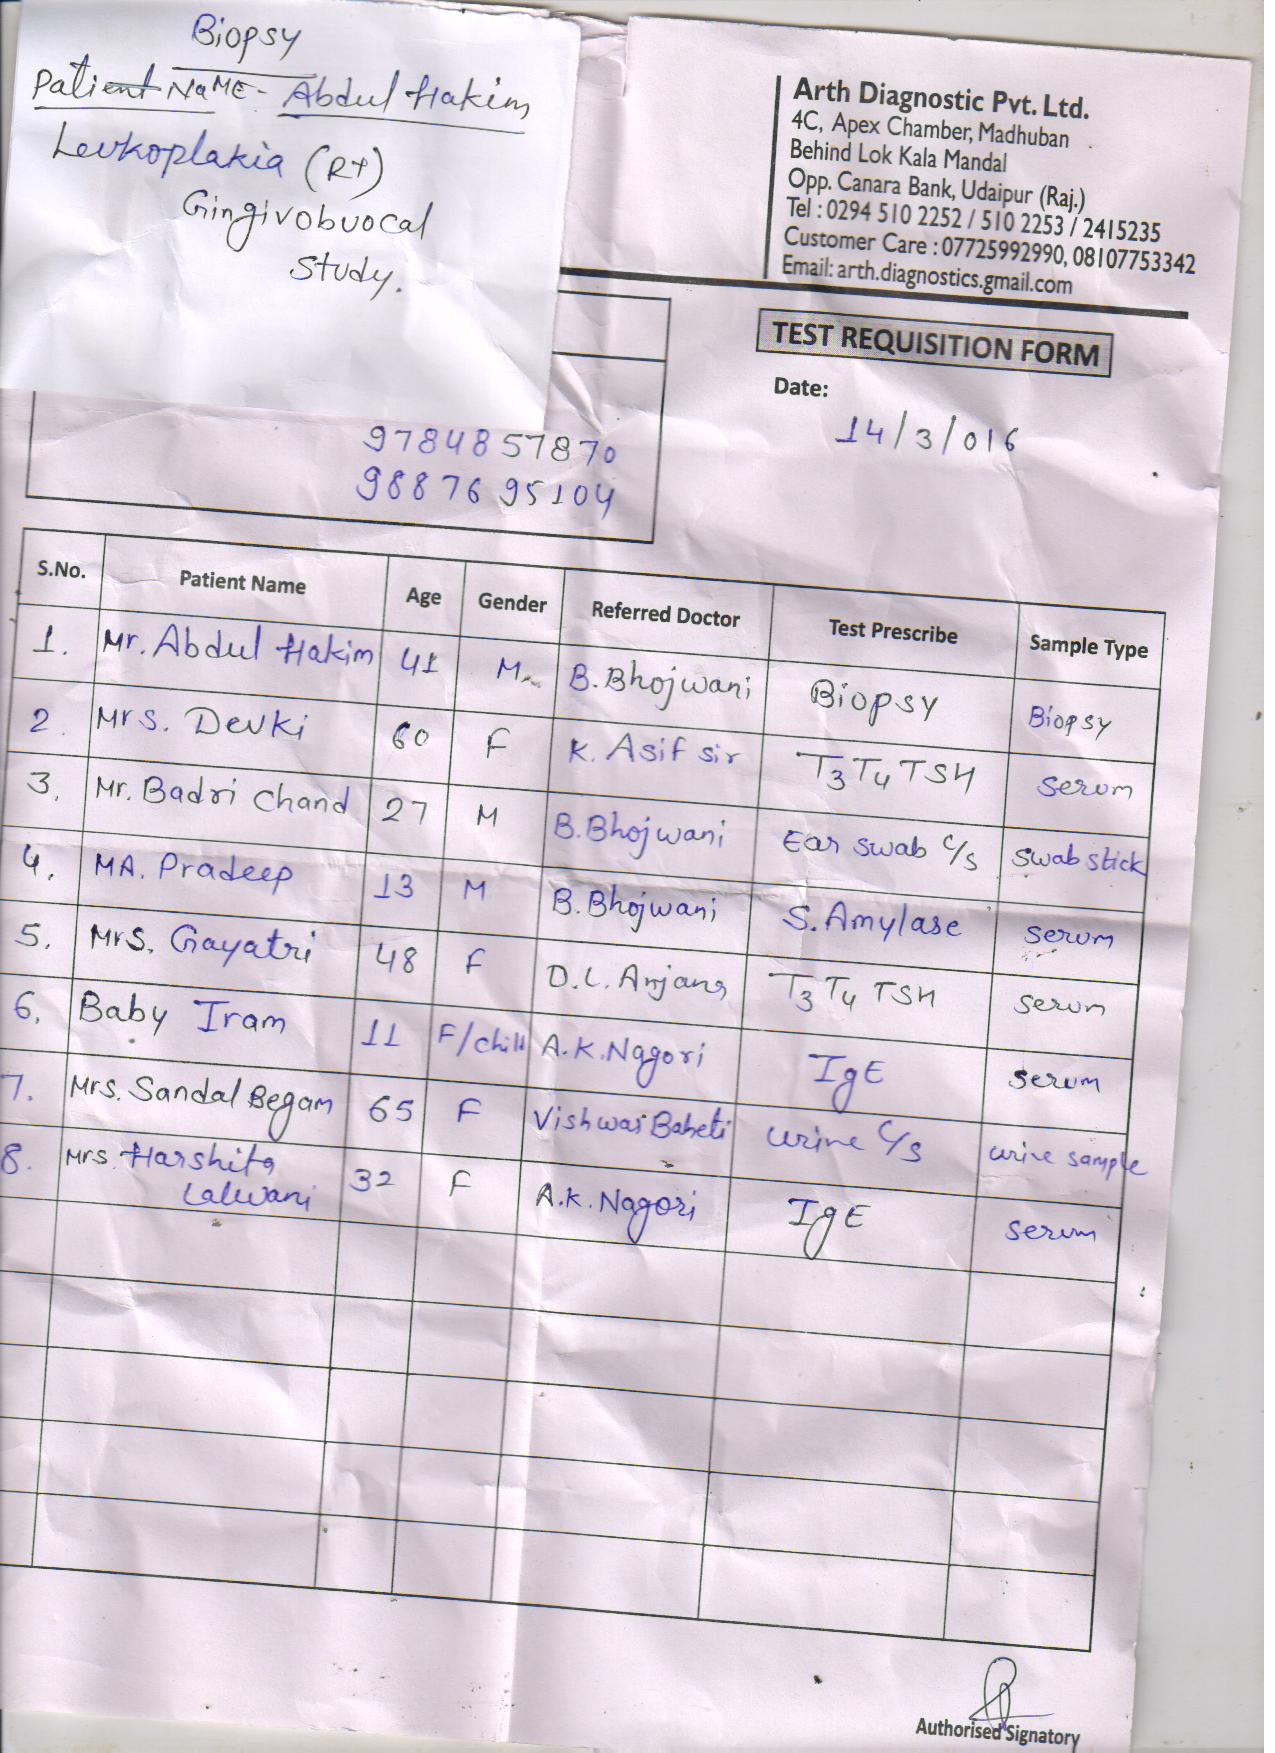 Biopsy
Patient NaME- Abdul Hakim
Leukoplakia (Rt)
Gingivobuocal
Study.
Arth Diagnostic Pvt. Ltd.
4C, Apex Chamber, Madhuban
Behind Lok Kala Mandal
Opp. Canara Bank, Udaipur (Raj.)
Tel : 0294 510 2252 / 510 2253 / 2415235
Customer Care : 07725992990, 08107753342
Email: arth.diagnostics.gmail.com
TEST REQUISITION FORM
Date:
14/3/016
9784857870
9887695104
S.No. Patient Name Age Gender Referred Doctor Test Prescribe Sample Type
1. Mr. Abdul Hakim 41 M B.Bhojwani Biopsy Biopsy
2. Mrs. Devki 60 F K. Asif sir T3 T4 TSH Serum
3. Mr. Badri Chand 27 M B.Bhojwani Ear swab C/s Swab stick
4. MA. Pradeep 13 M B.Bhojwani S. Amylase Serum
5. Mrs. Gayatri 48 F D.L. T3 T4 TSH Serum
6. Baby Iram 11 F/chill A.K. Nagori IgE Serum
7. Mrs. Sandal Begam 65 F Vishwas Baheti urine C/s urine sample
8. Mrs. Harshita 32 F A.K. Nagori IgE Serum
Lalwani
Authorised Signatory